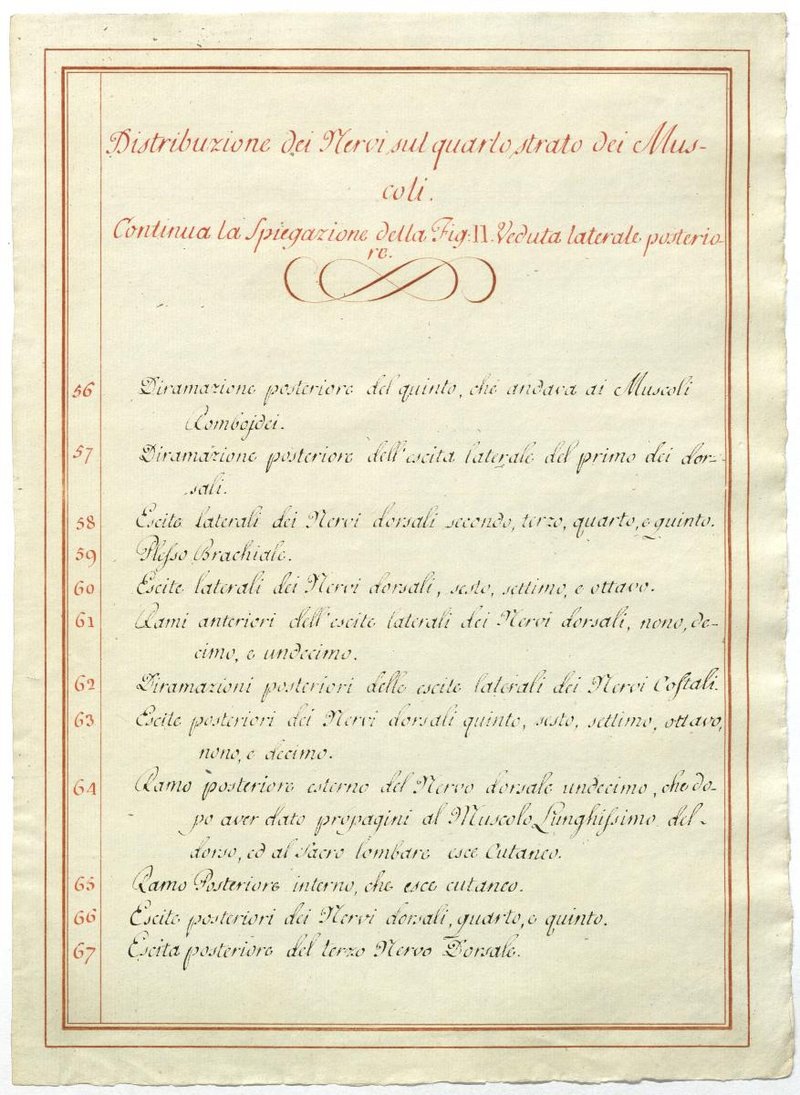 Distribuzione dei Nervi sul quarto strato dei Mus-
coli.
Continua la Spiegazione della Fig: II. Veduta laterale posterio
re.
56 Diramazione posteriore del quinto, che andava ai Muscoli
Rombojdei.
57 Diramazione posteriore dell'escita laterale del primo dei dor-
sali.
58 Escite laterali dei Nervi dorsali secondo, terzo, quarto, e quinto.
59 Plesso Brachiale.
60 Escite laterali dei Nervi dorsali, sesto, settimo, e ottavo.
61 Rami anteriori dell'escite laterali dei Nervi dorsali, nono, de-
cimo, e undecimo.
62 Diramazioni posteriori delle escite laterali dei Nervi Costali.
63 Escite posteriori dei Nervi dorsali quinto, sesto, settimo, ottavo,
nono, e decimo.
64 Ramo posteriore esterno del Nervo dorsale undecimo, che do-
po aver dato propagini al Muscolo Lunghissimo del
dorso, ed al Sacro lombare esce Cutaneo.
65 Ramo Posteriore interno, che esce cutaneo.
66 Escite posteriori dei Nervi dorsali, quarto, e quinto.
67 Escita posteriore del terzo Nervo Dorsale.